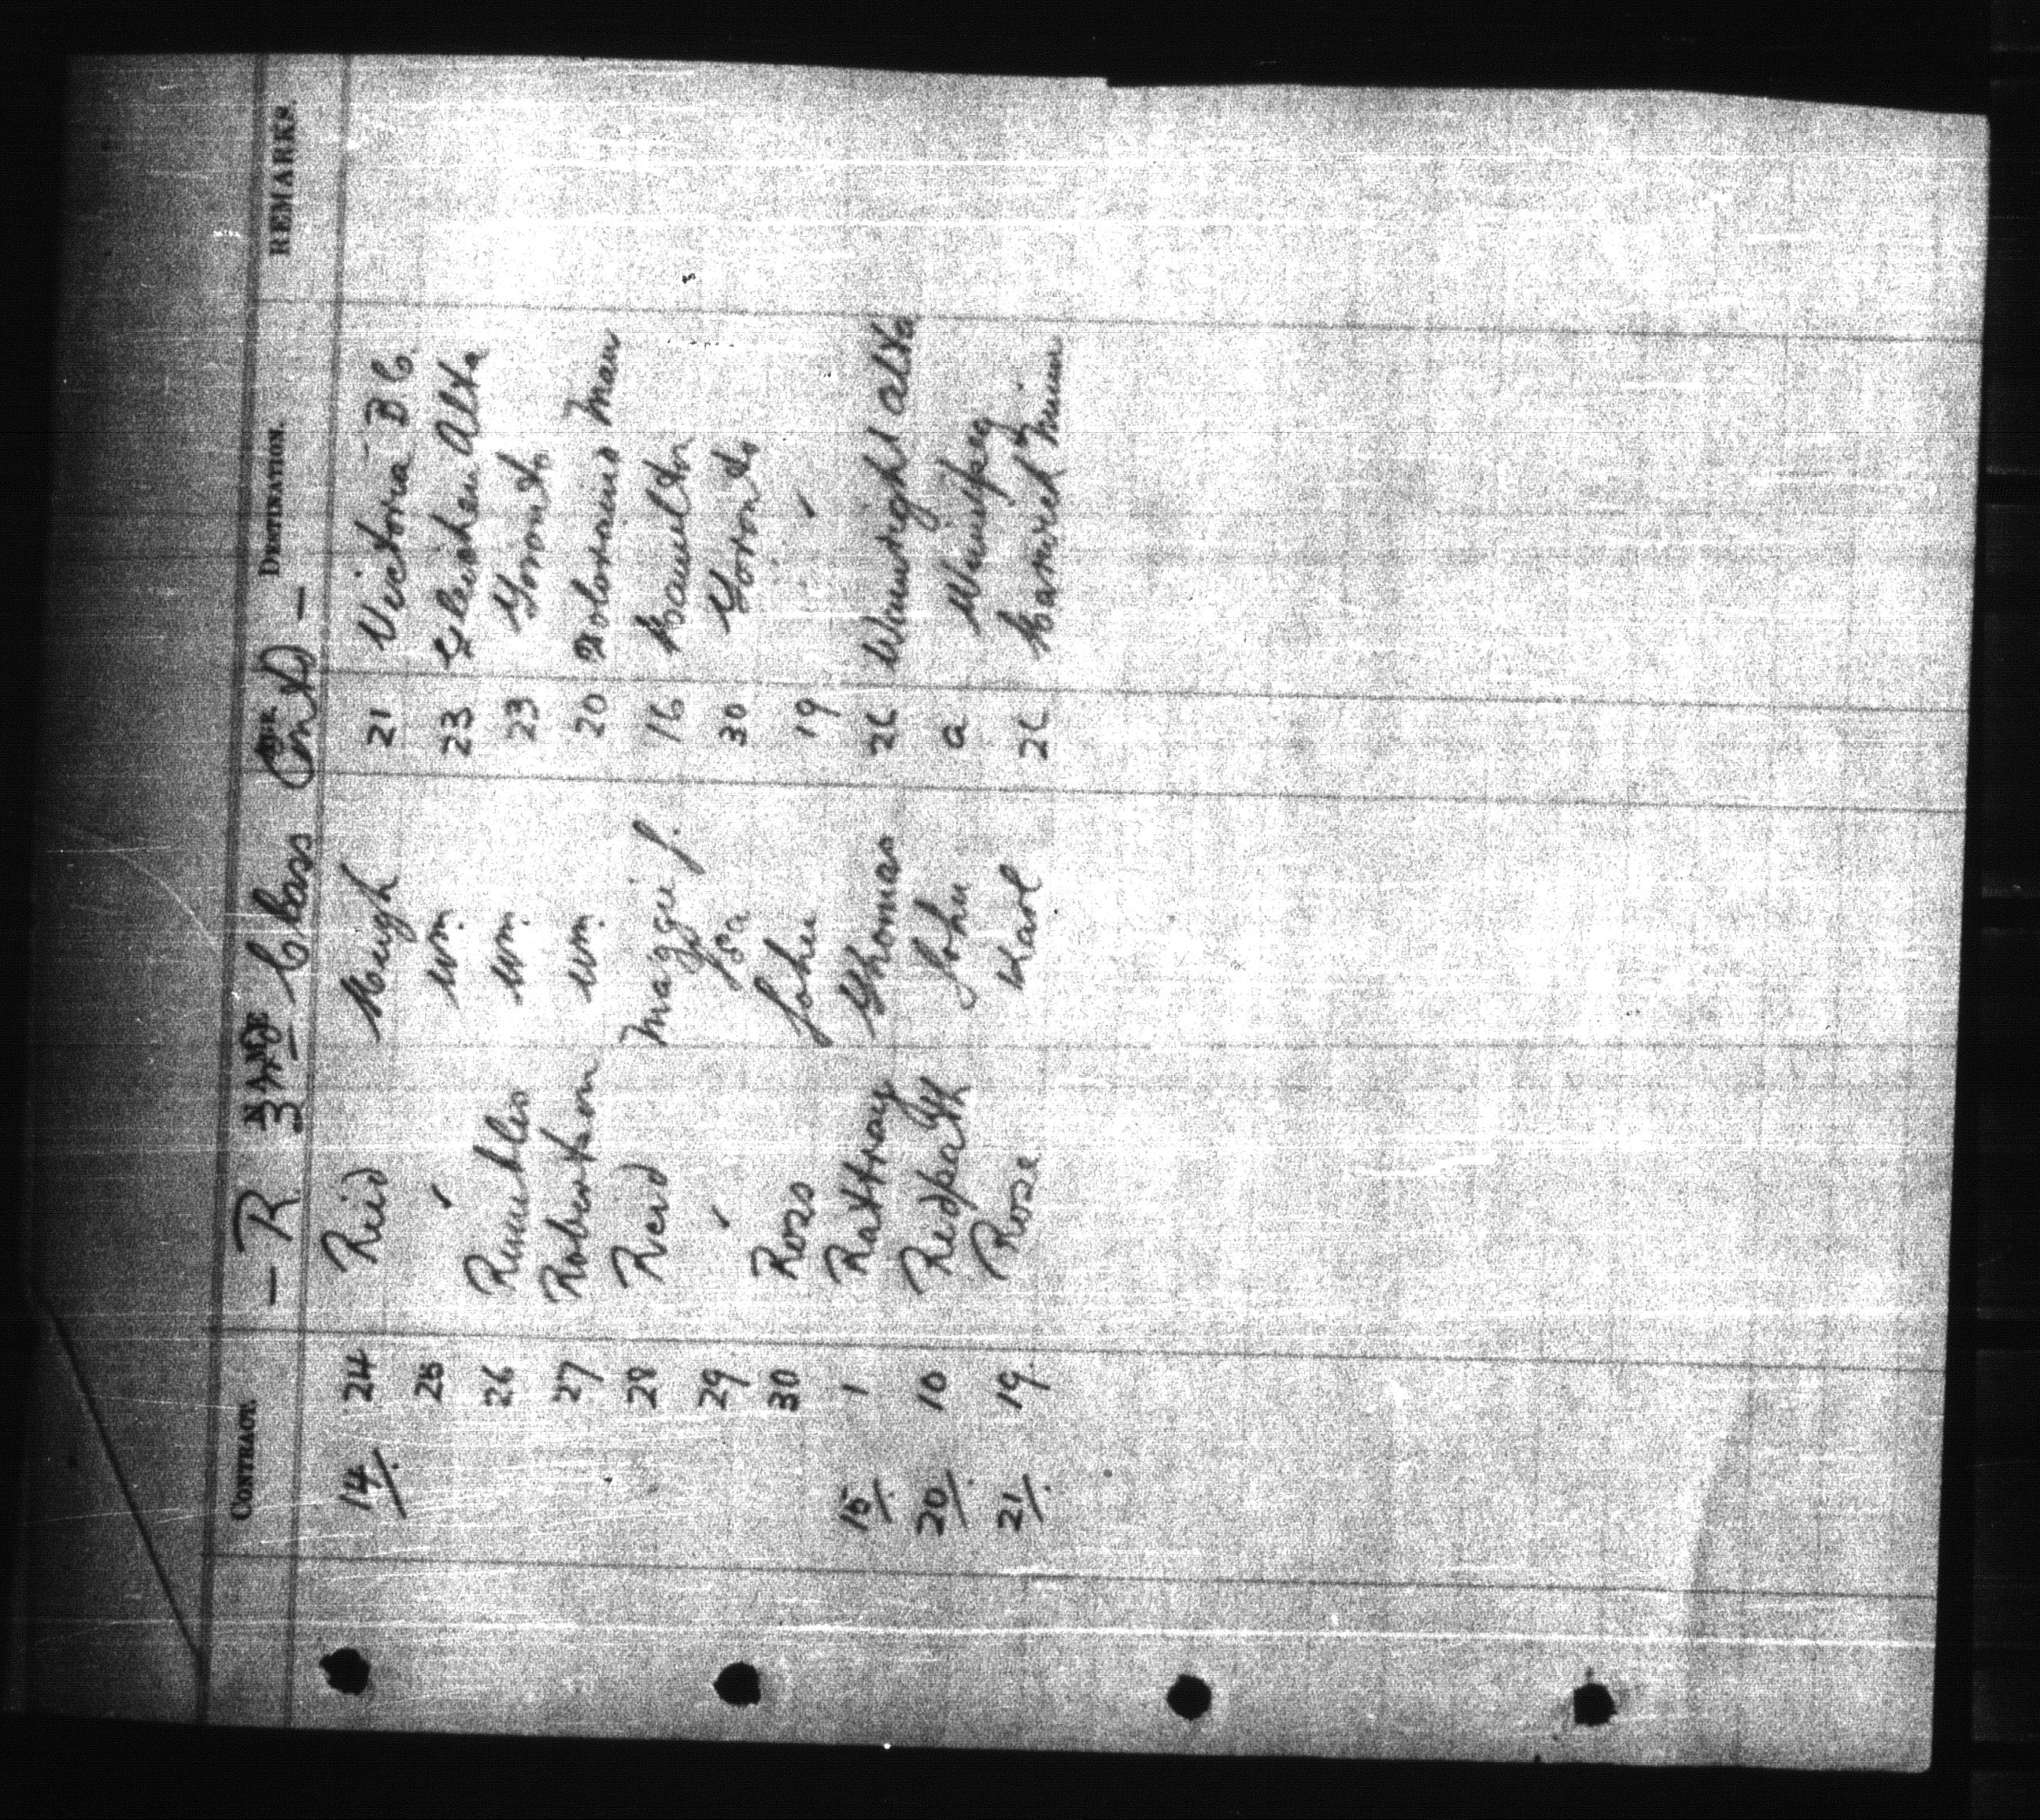 — R 3RD Class Cont'd —
CONTRACT. NAME AGE DESTINATION. REMARKS.
14/. 24 Reid Hugh 21 Victoria B C.
25 " Wm. 23 Gleichen Alta
26 Rumbles Wm. 23 Toronto
27 Robertson Wm. 20 Deloraine Man
28 Reid Maggie J. 16 Hamilton
29 " Isa 30 Toronto
30 Ross John 19 "
15/. 1 Rattray Thomas 26 Wainwright Alta
20/. 10 Reidpath John a Winnipeg
21/. 19. Rose Karl 26 Minn